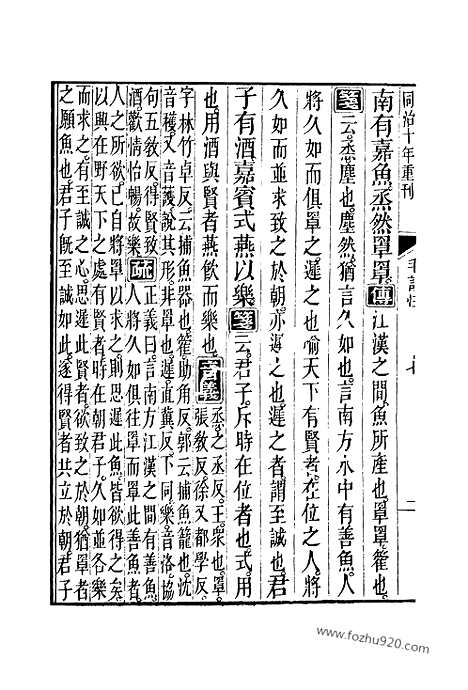 同治十年重刊
二
南有嘉魚烝然罩罩傳江漢之間魚所產也罩罩籗也
箋云烝塵也塵然猶言久如也言南方水中有善魚人
將久如而俱罩之遲之也喻天下有賢者在位之人將
久如而並求致之於朝亦遲之也遲之者謂至誠也君
子有酒嘉賓式燕以樂箋云君子斥時在位者也式用
也用酒與賢者燕飲而樂也音義烝之丞反王衆也罩
張敎反徐又都學反
字林竹卓反云捕魚器也籗助角反郭云捕魚籠也沈
音穫又音護說其形非罩也遲直冀反下同樂音洛協
句五敎反得賢致
酒歡情怡暢故樂疏正義曰言南方江漢之間有善魚
人將久如俱往罩而罩此善魚者
人之所欲己自將罩以求之則思遲此魚皆欲得之矣
以興在野天下之處有賢者時在朝君子久如並各樂
而求之有至誠之心思遲此賢者欲致之於朝猶罩者
之願魚也君子旣至誠如此遂得賢者共立於朝君子
www.fozhu920.com